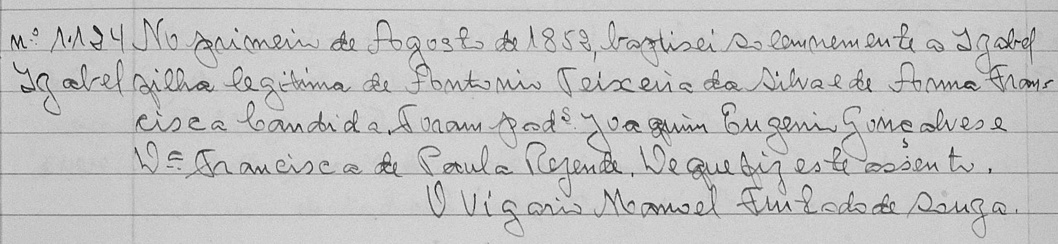 nº 1.124 No primeiro de Agosto de 1852, baptisei solemnemente a Izabel
Izabel filha legitima de Antonio Teixeria da Silva e de Anna Fran-
cisca Candida. Foram padº Joaquim Eugenio Gonçalves e
Dª Francisca de Paula Rezende. De que fiz este assento.
O Vigario Manoel Furtado de Souza.